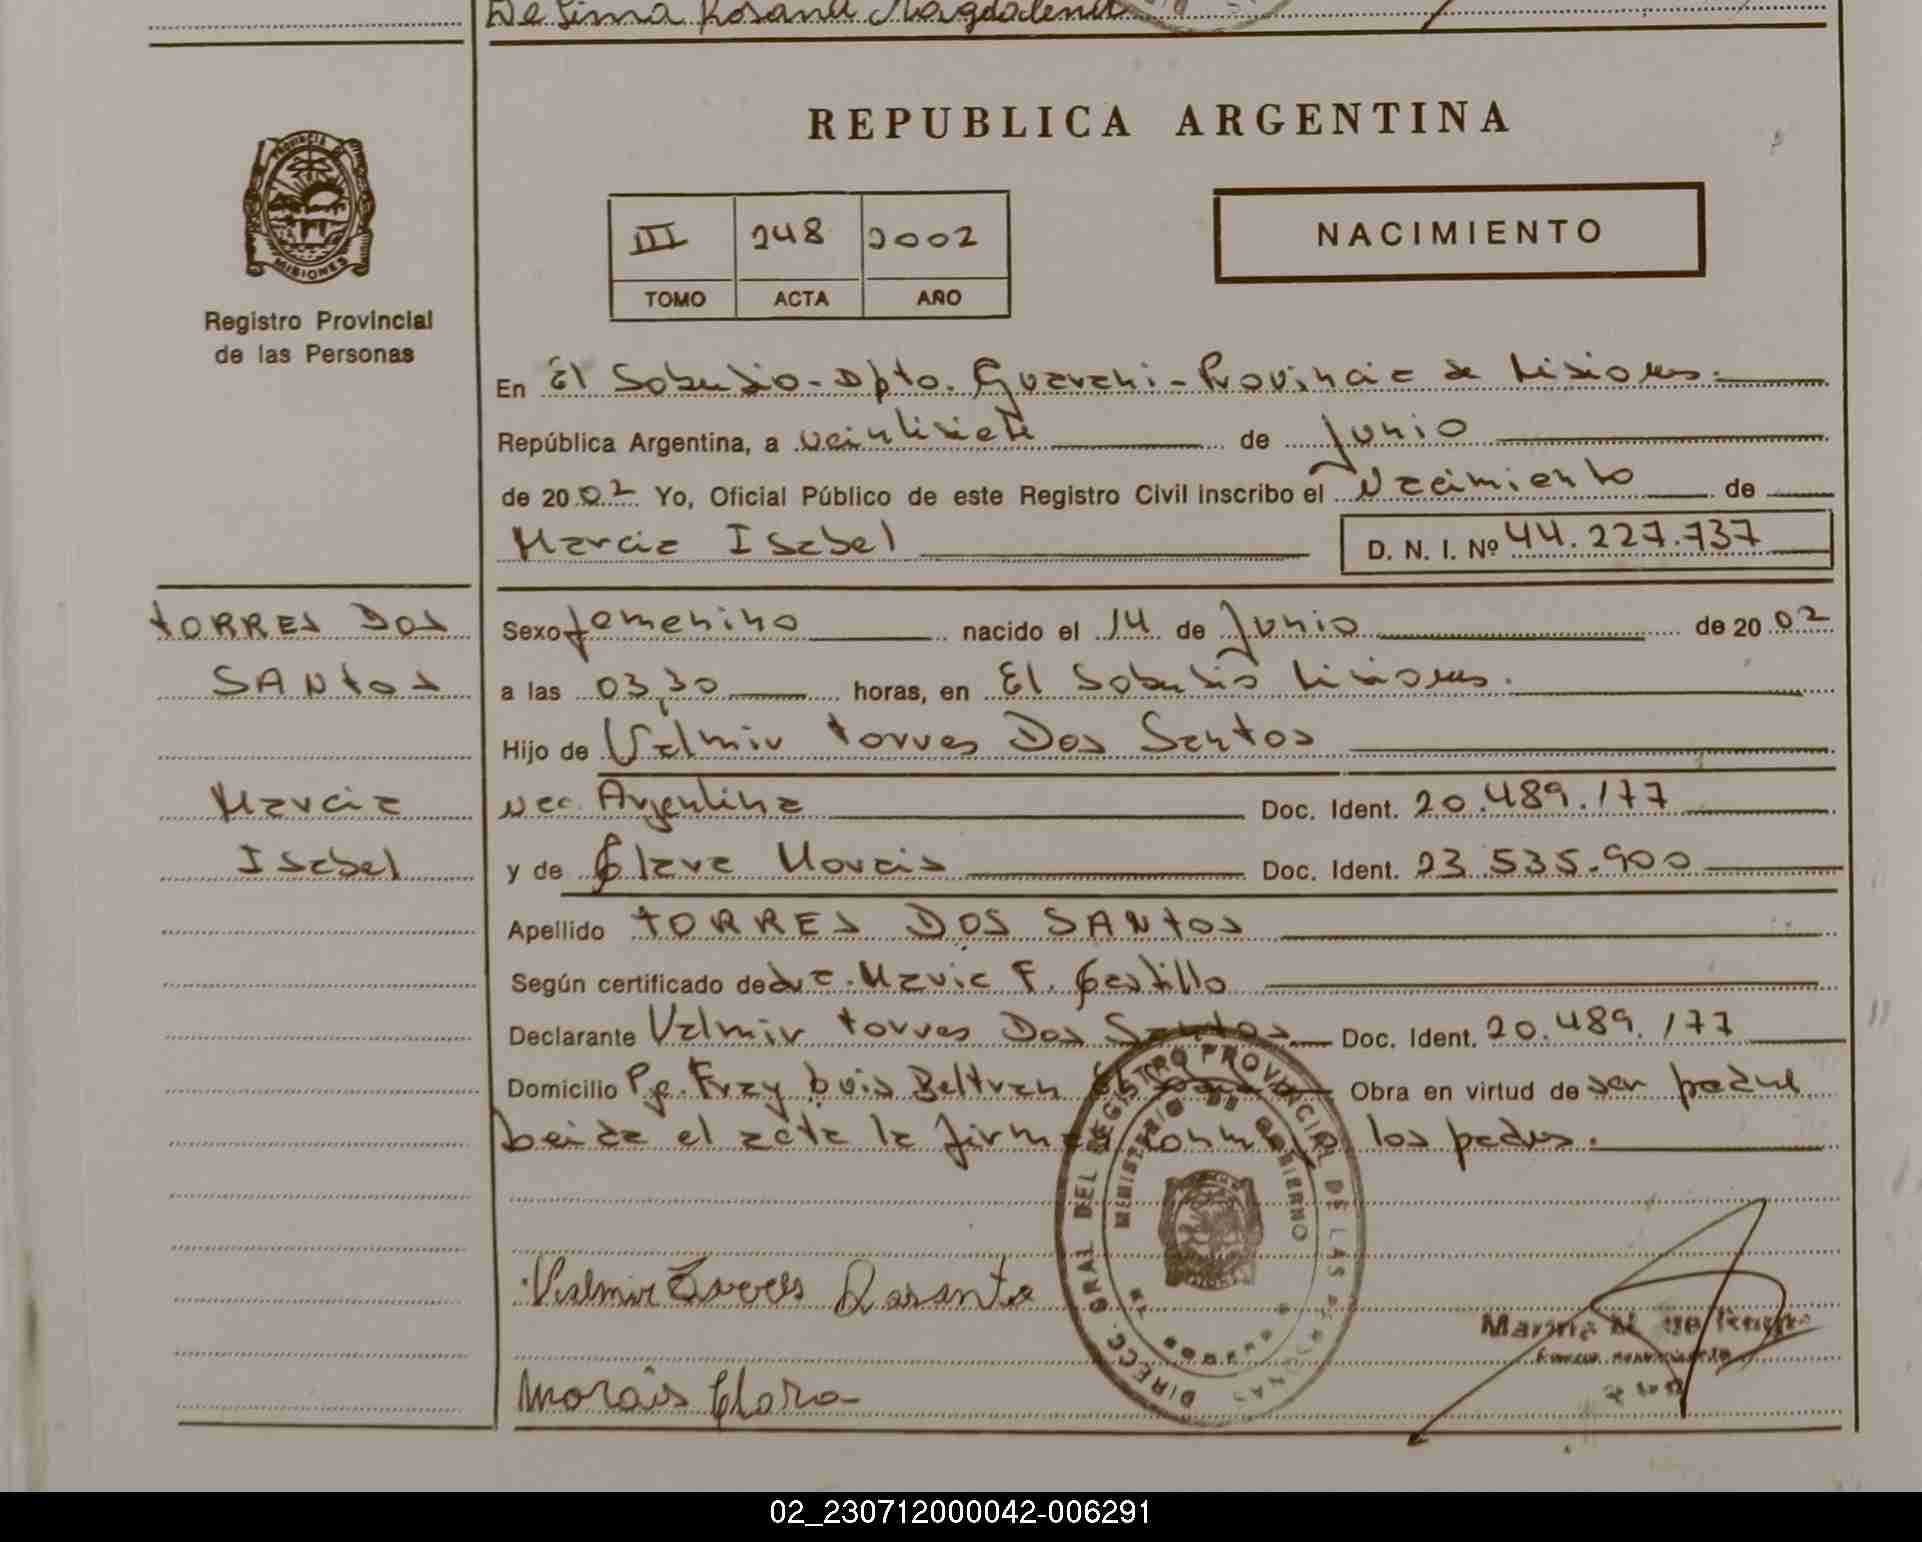 De Lima Rosana Magdalena
REPUBLICA ARGENTINA
PROVINCIA DE
MISIONES
Registro Provincial
de las Personas
III 248 2002
TOMO ACTA AÑO
NACIMIENTO
En El Soberbio - Dpto. Guarani - Provincia de Misiones.
República Argentina, a veintisiete de Junio
de 2002 Yo, Oficial Público de este Registro Civil inscribo el Nacimiento de
Marcia Isabel D. N. I. Nº 44.227.737
TORRES DOS
SANTOS
Marcia
Isabel
Sexo femenino nacido el 14 de Junio de 2002
a las 03,30 horas, en El Soberbio Misiones.
Hijo de Valmir Torres Dos Santos
Nac. Argentina Doc. Ident. 20.489.177
y de Clara Morais Doc. Ident. 23.535.900
Apellido TORRES DOS SANTOS
Según certificado de dra. Maria F. Castillo
Declarante Valmir Torres Dos Santos Doc. Ident. 20.489.177
Domicilio Pje. Fray Luis Beltran El Obra en virtud de ser padre
Leida el acta la firman los padres.
DIRECC. GRAL. DEL REGISTRO PROVINCIAL DE LAS PERSONAS
MINISTERIO DE GOBIERNO
Valmir Torres Dosantos
Morais Clara
02_230712000042-006291